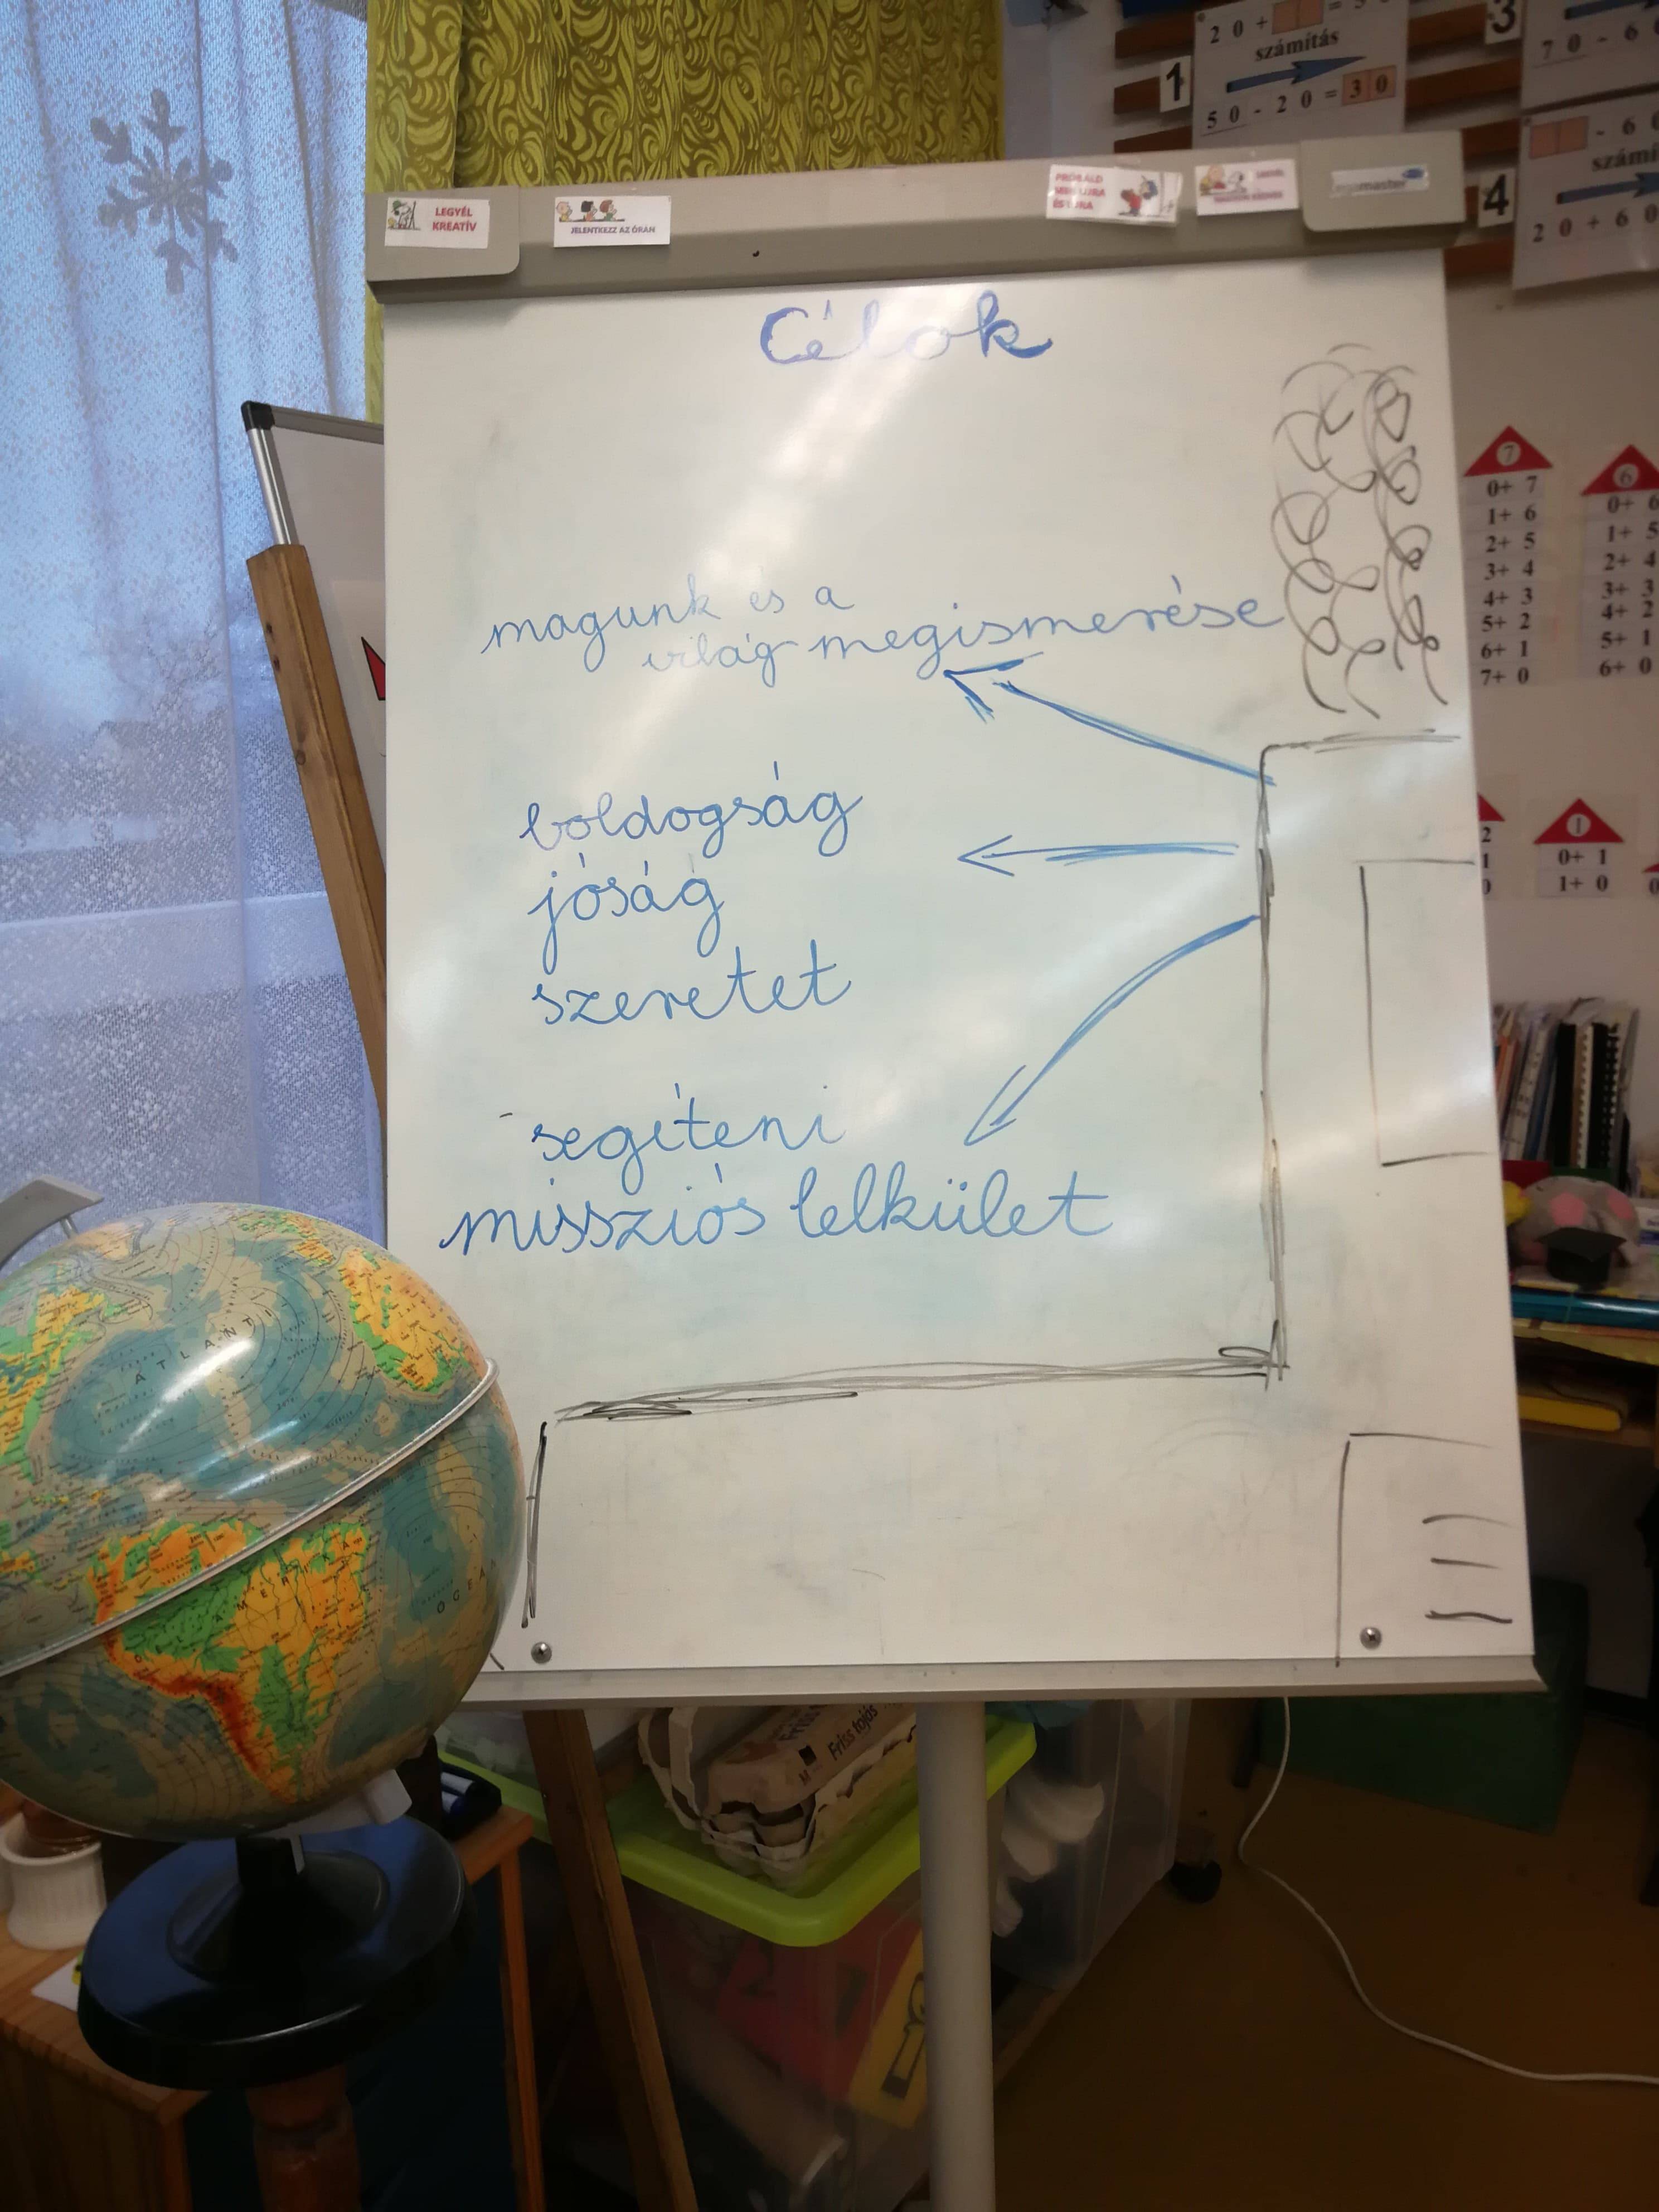 20+ = 5
számítás
50-20=30
1
3
70-6
- 6
számí
20+60
4
LEGYÉL
KREATÍV
JELENTKEZZ AZ ÓRÁN
PRÓBÁLD
MEG ÚJRA
ÉS ÚJRA
Célok
magunk és a
világ megismerése
boldogság
jóság
szeretet
segíteni
missziós lelkület
7
0+ 7
1+ 6
2+ 5
3+ 4
4+ 3
5+ 2
6+ 1
7+ 0
6
0+ 6
1+ 5
2+ 4
3+ 3
4+ 2
5+ 1
6+ 0
2
1
0
1
0+ 1
1+ 0
ATLANTI
AMERIKA
ÓCEÁN
Friss tojás
M